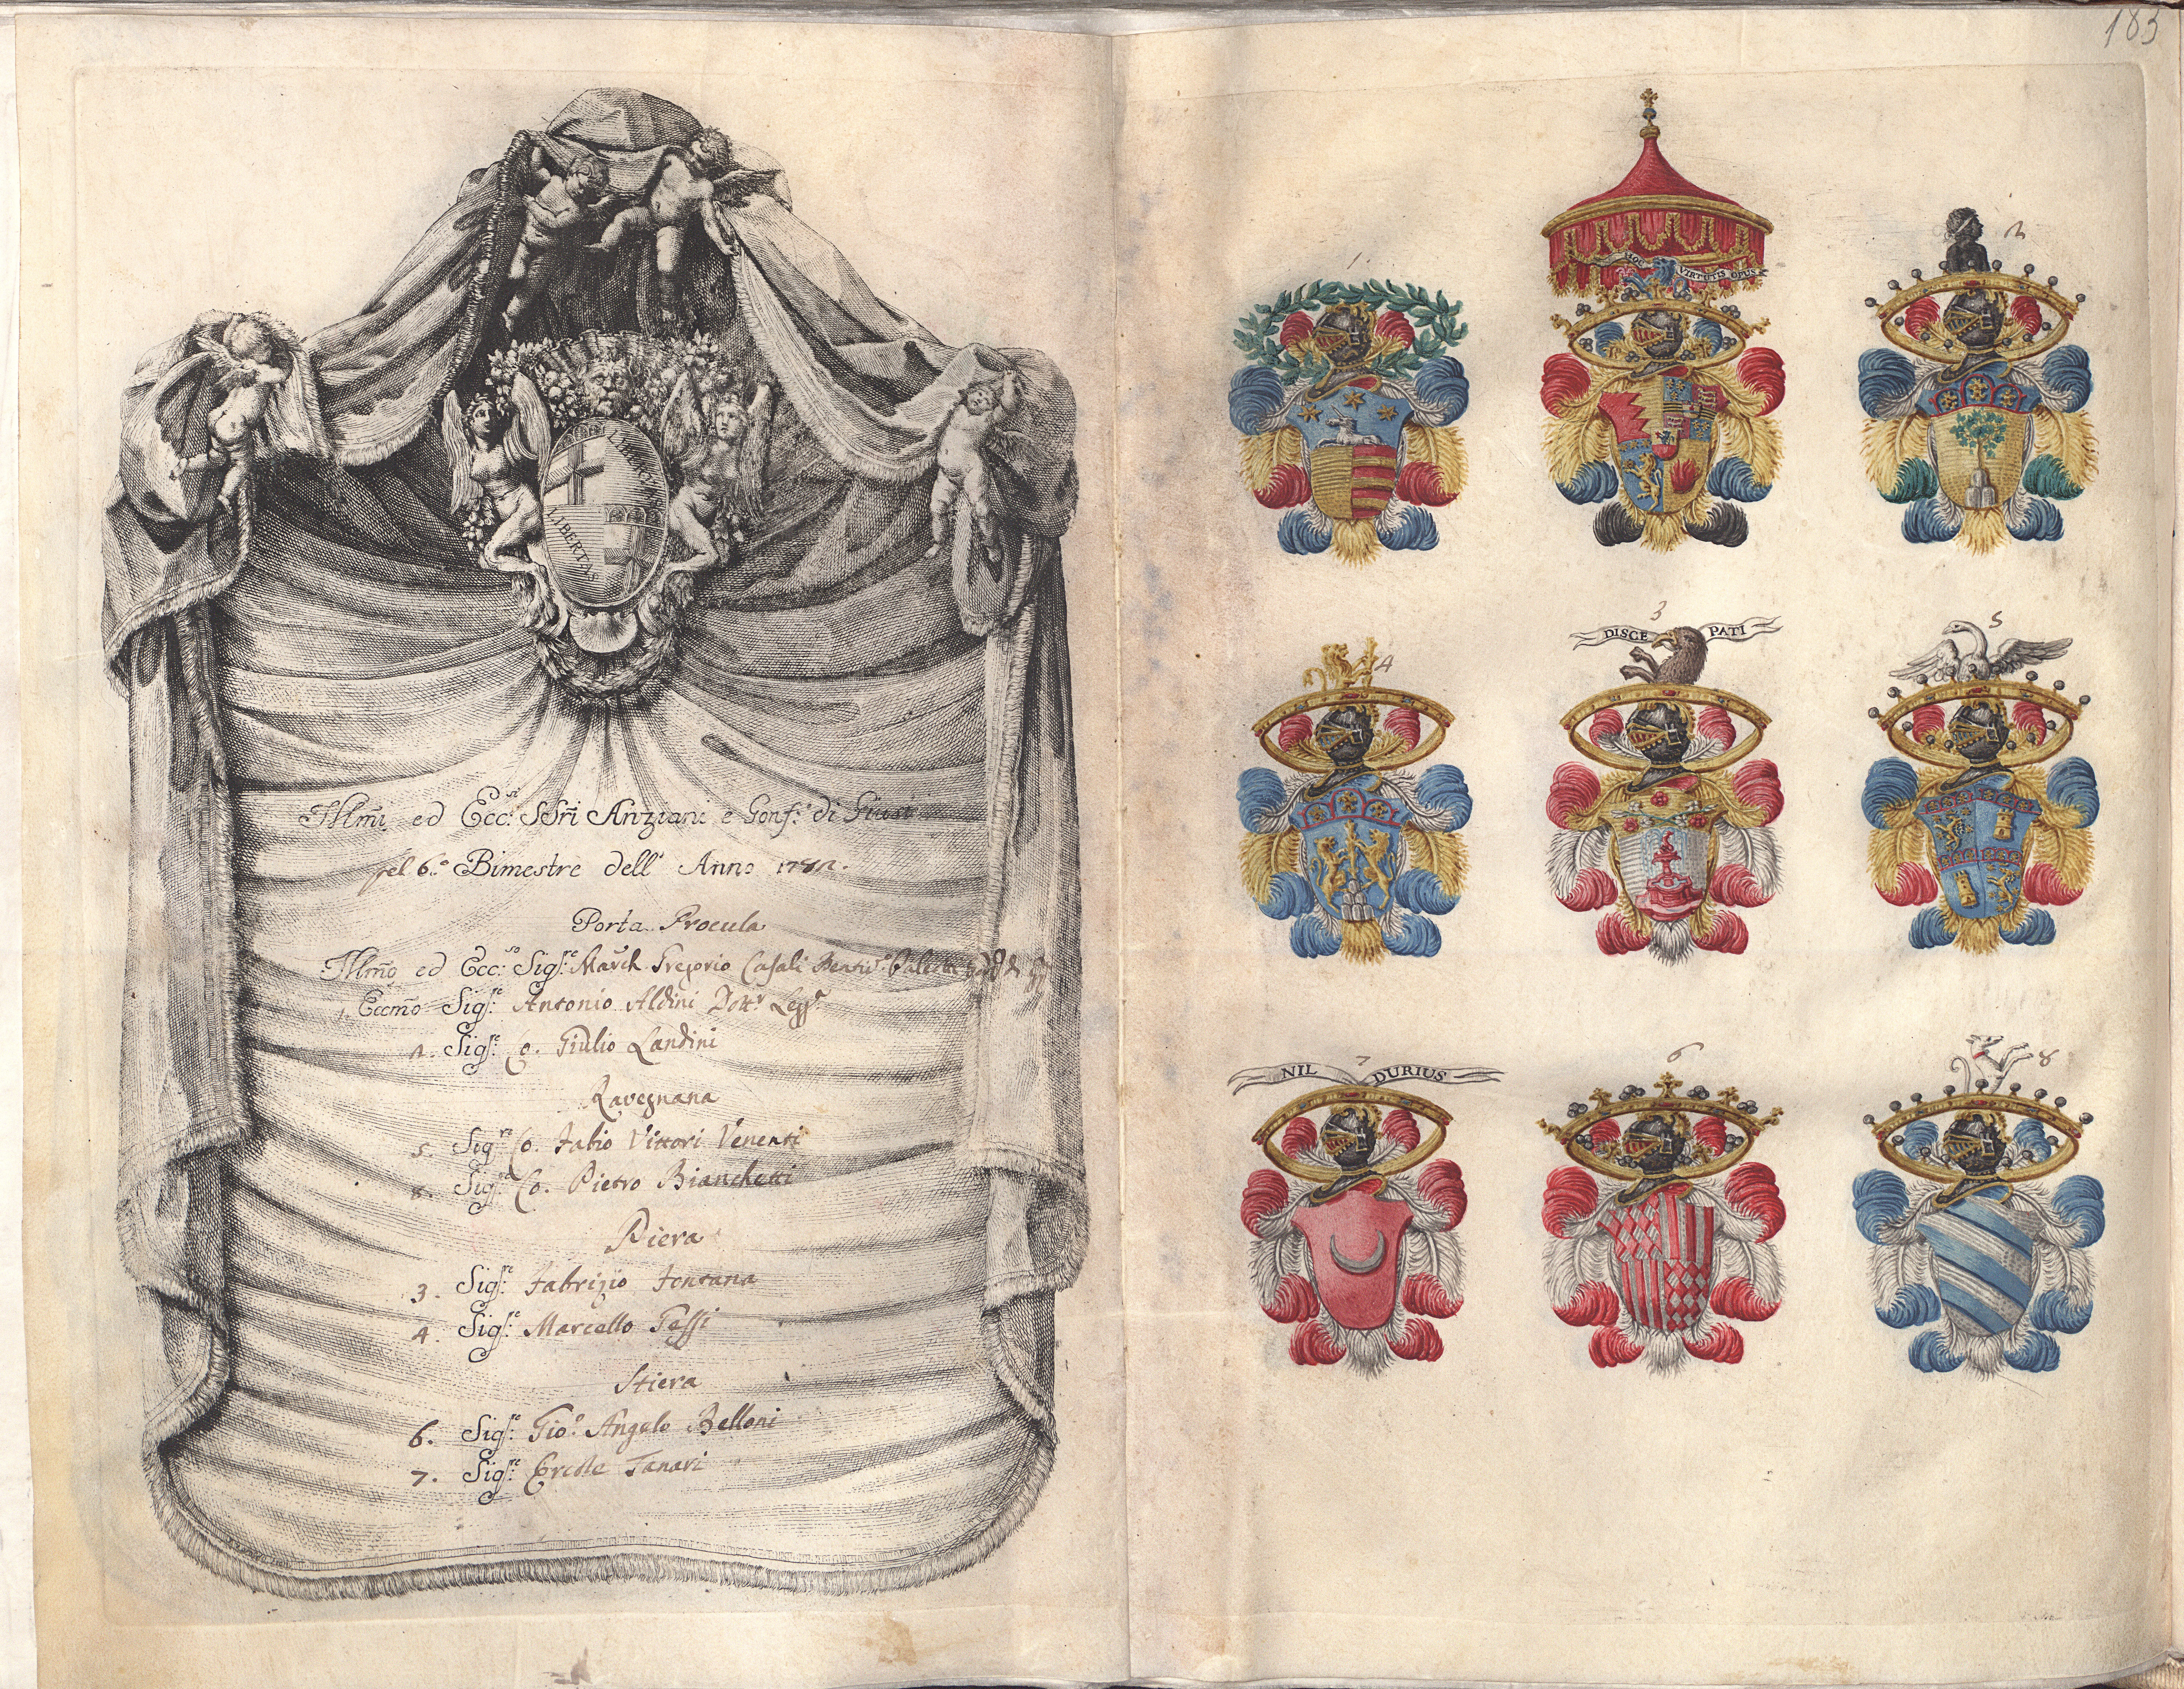 LIBERTAS
LIBERTAS
Illm̃i ed Ecc:si SSri Anziani e Gonf: di Giust
pel 6.o Bimestre dell' Anno
Porta Procula
Illm̃o ed Ecc:so Sigr:e March Gregorio Casali
1. Eccm̃o Sigr:e Antonio Aldini Dottr Legge
2. Sigr:e Co. Giulio Landini
Ravegnana
5. Sigr:e Co. Fabio Vittori Venenti
8. Sigr:e Co. Pietro Bianchetti
Piera
3. Sigr:e Fabrizio Fontana
4. Sigr:e Marcello
Stiera
6. Sigr:e Gio. Angelo Belloni
7. Sigr:e Ercole Tanari
183
1.
VIRTUTIS OPUS
2
4
3
DISCE PATI
5
7
NIL DURIUS
6
8